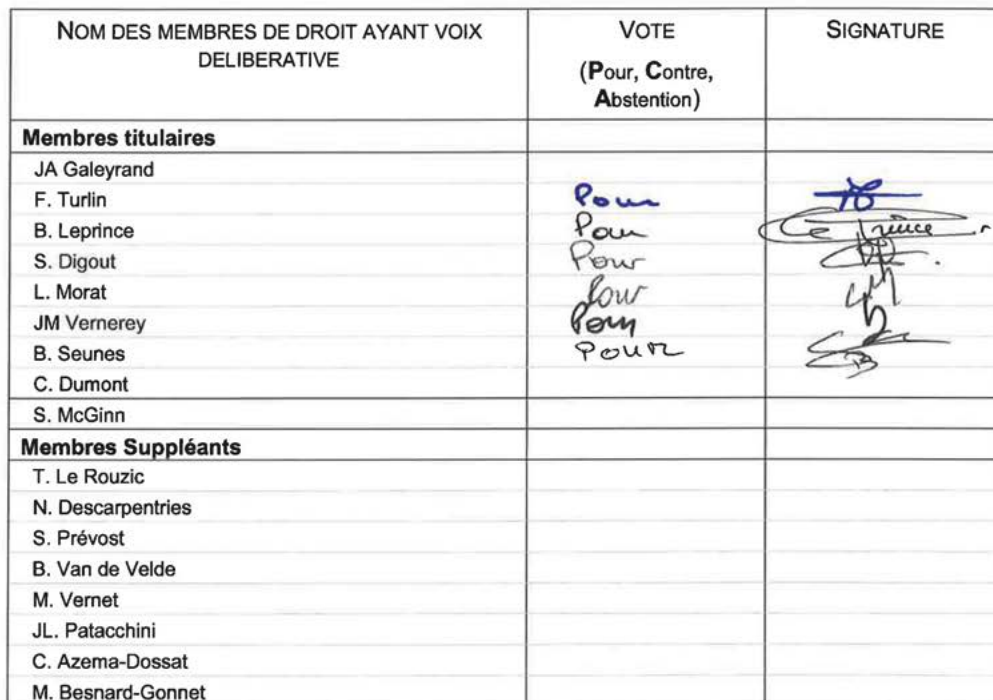 NOM DES MEMBRES DE DROIT AYANT VOIX DELIBERATIVE
VOTE
(Pour, Contre, Abstention)
SIGNATURE
Membres titulaires
JA Galeyrand
F. Turlin Pour
B. Leprince Pour
S. Digout Pour
L. Morat Pour
JM Vernerey Pour
B. Seunes POUR
C. Dumont
S. McGinn
Membres Suppléants
T. Le Rouzic
N. Descarpentries
S. Prévost
B. Van de Velde
M. Vernet
JL. Patacchini
C. Azema-Dossat
M. Besnard-Gonnet